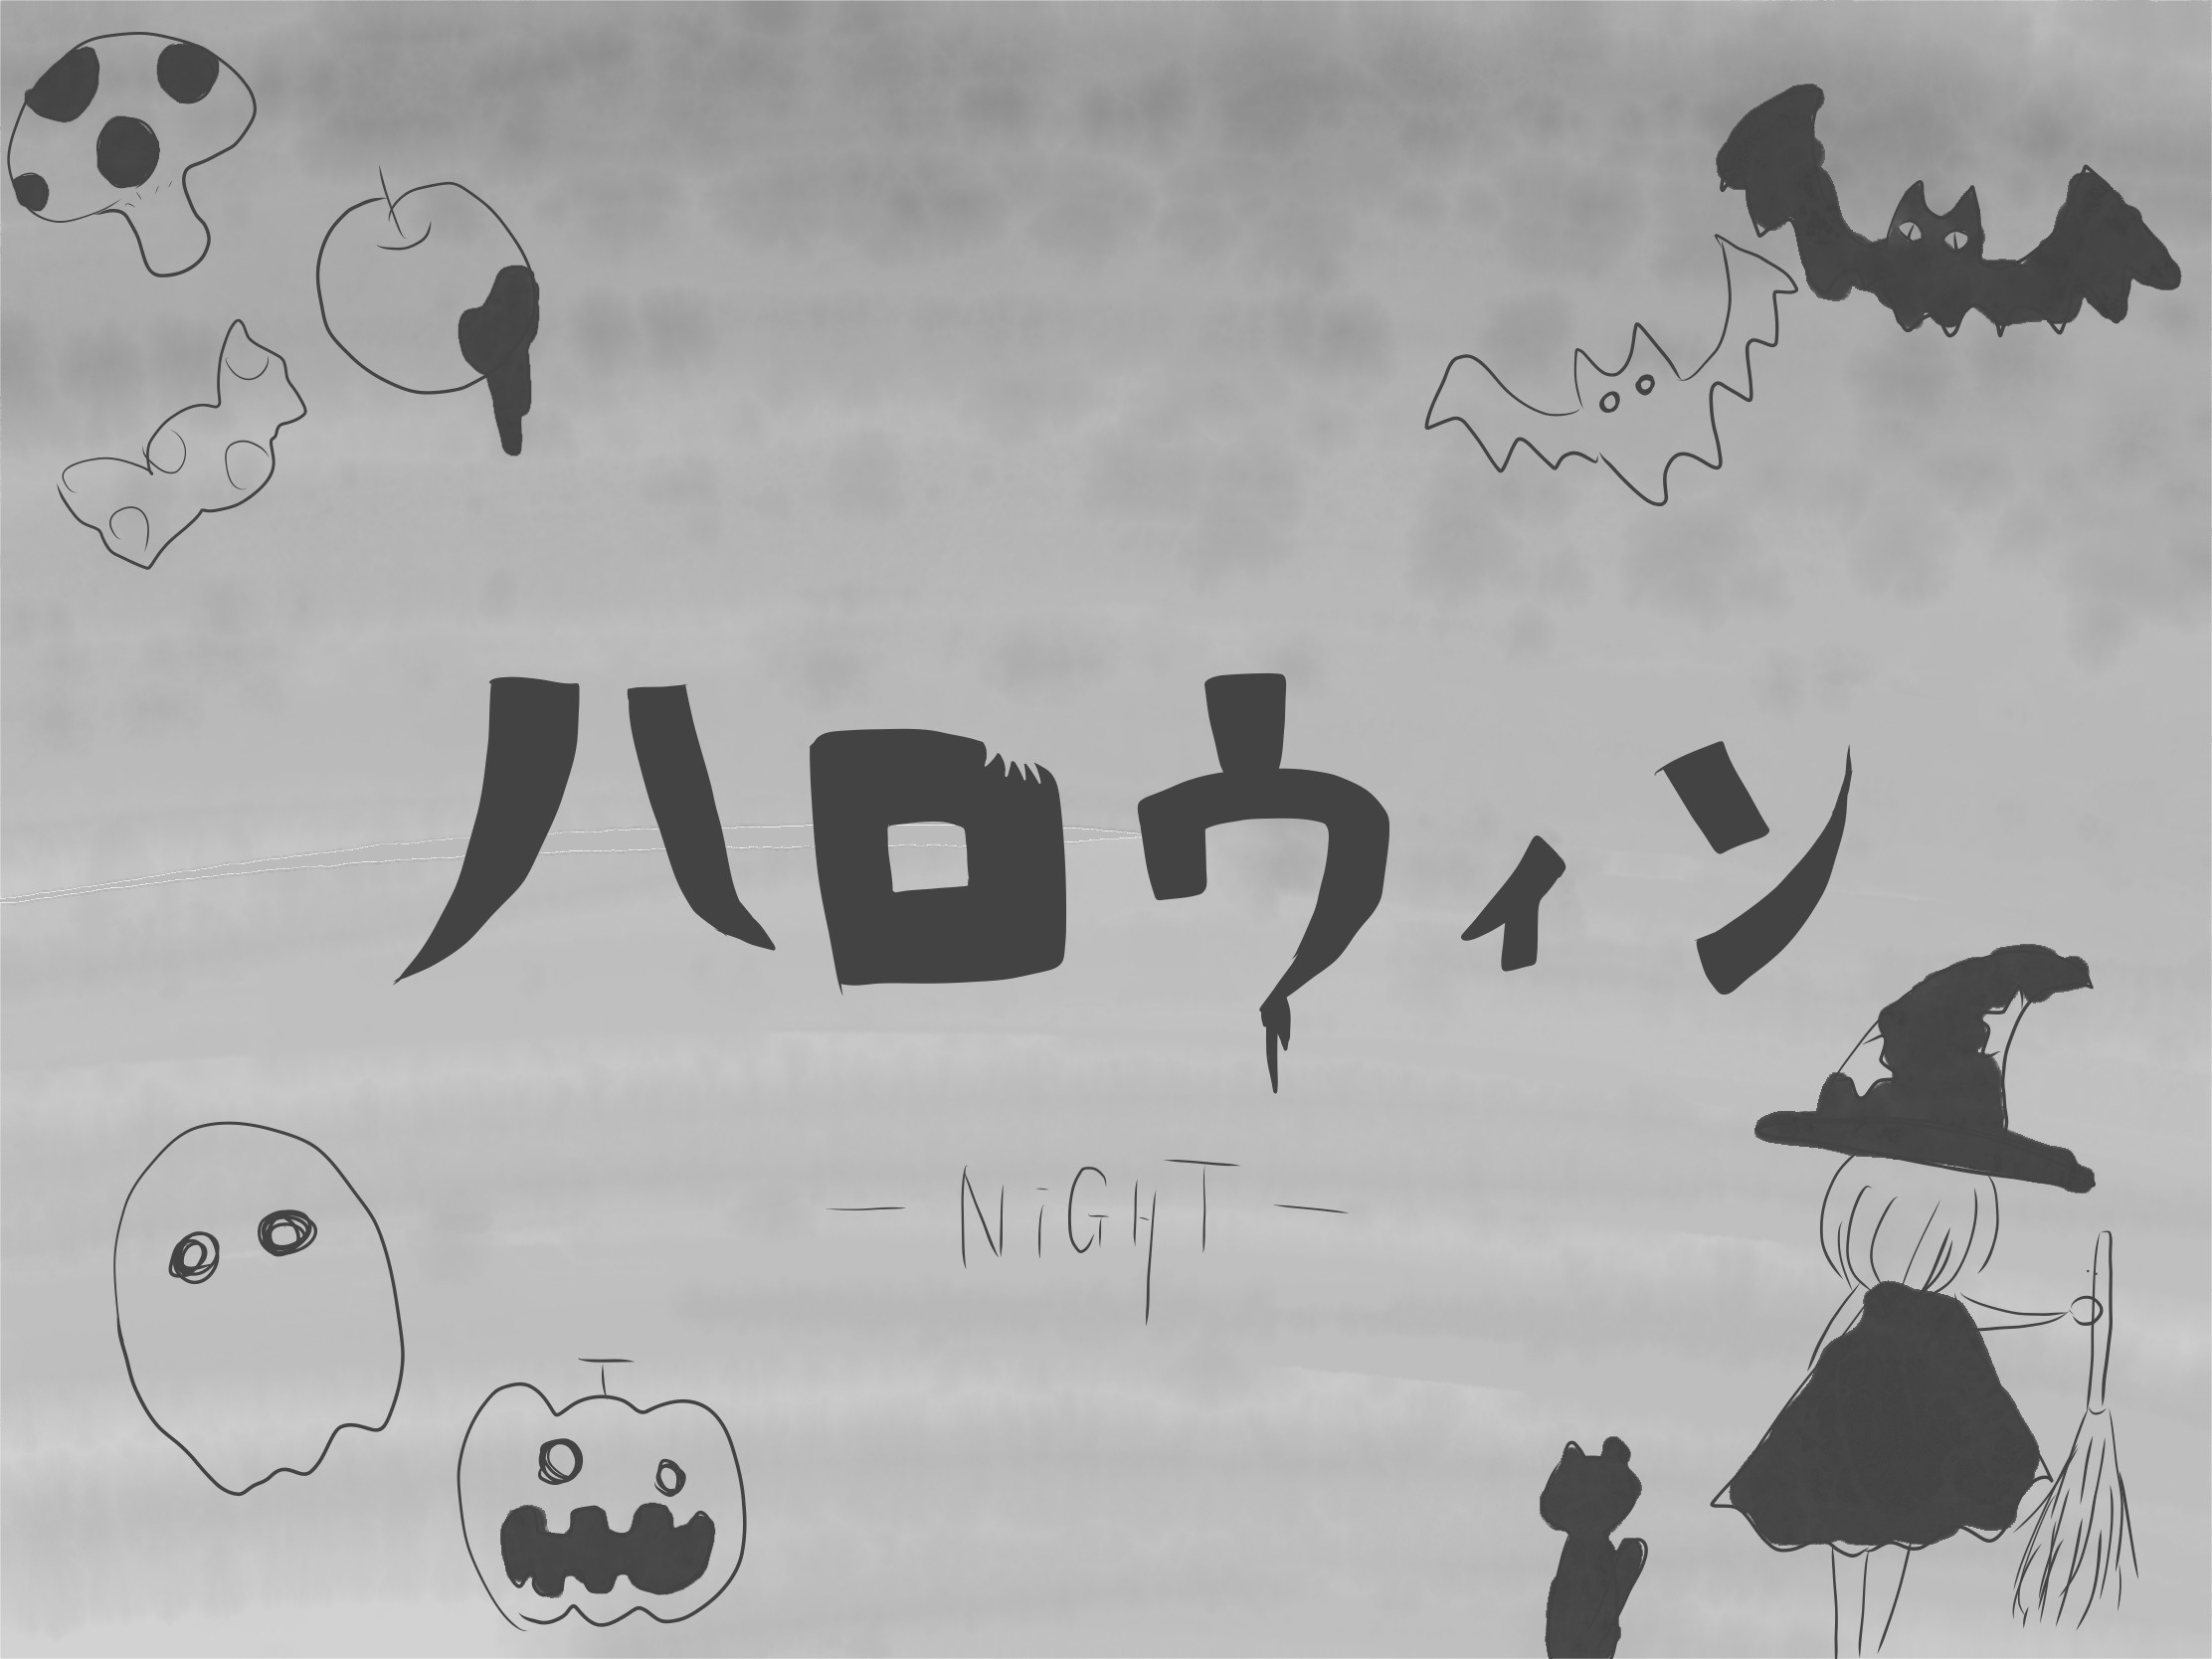 ハロウィン
— NiGHT —